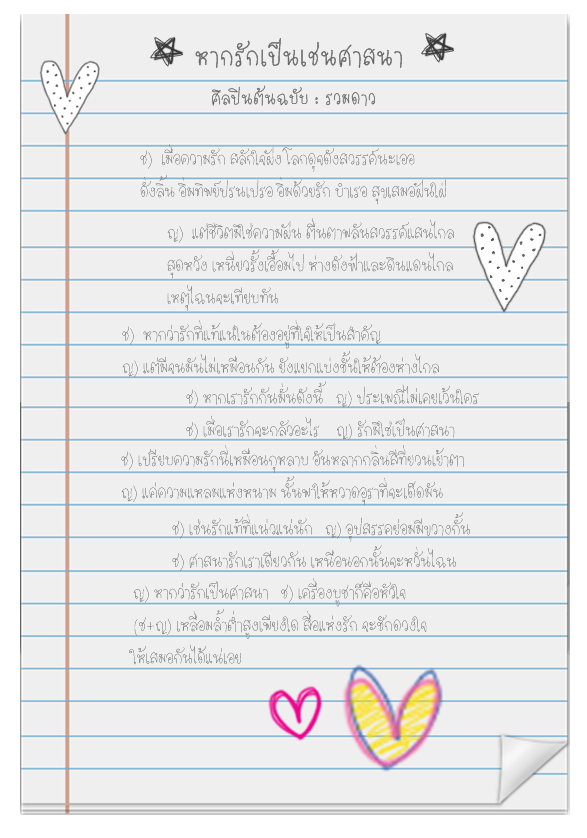 หากรักเป็นเช่นศาสนา
ศิลปินต้นฉบับ : รวมดาว
ช) เมื่อความรัก สลักใจฝังโลกดุจดังสวรรค์นะเออ
ดั่งลิ้น อิ่มทิพย์ปรนเปรอ อิ่มด้วยรัก บำเรอ สุขเสมอฝันใฝ่
ญ) แต่ชีวิตมิใช่ความฝัน ตื่นตาพลันสวรรค์แสนไกล
สุดหวัง เหนี่ยวรั้งเอื้อมไป ห่างดังฟ้าและดินแดนไกล
เหตุไฉนจะเทียบทัน
ช) หากว่ารักที่แท้แน่ในต้องอยู่ที่ใจให้เป็นสำคัญ
ญ) แต่มีจนมันไม่เหมือนกัน ยังแยกแบ่งชั้นให้ต้องห่างไกล
ช) หากเรารักกันมั่นดังนี้ ญ) ประเพณีไม่เคยเว้นใคร
ช) เมื่อเรารักจะกลัวอะไร ญ) รักมิใช่เป็นศาสนา
ช) เปรียบความรักนี่เหมือนกุหลาบ อันหลากกลิ่นสีที่ยวนเย้าตา
ญ) แค่ความแหลมแห่งหนาม นั้นพาให้หวาดอุราที่จะเด็ดมัน
ช) เช่นรักแท้ที่แน่วแน่นัก ญ) อุปสรรคย่อมมีขวางกั้น
ช) ศาสนารักเราเดียวกัน เหนือนอกนั้นจะหวั่นไฉน
ญ) หากว่ารักเป็นศาสนา ช) เครื่องบูชาก็คือหัวใจ
(ช+ญ) เหลื่อมล้ำต่ำสูงเพียงใด สื่อแห่งรัก จะชักดวงใจ
ให้เสมอกันได้แน่เอย